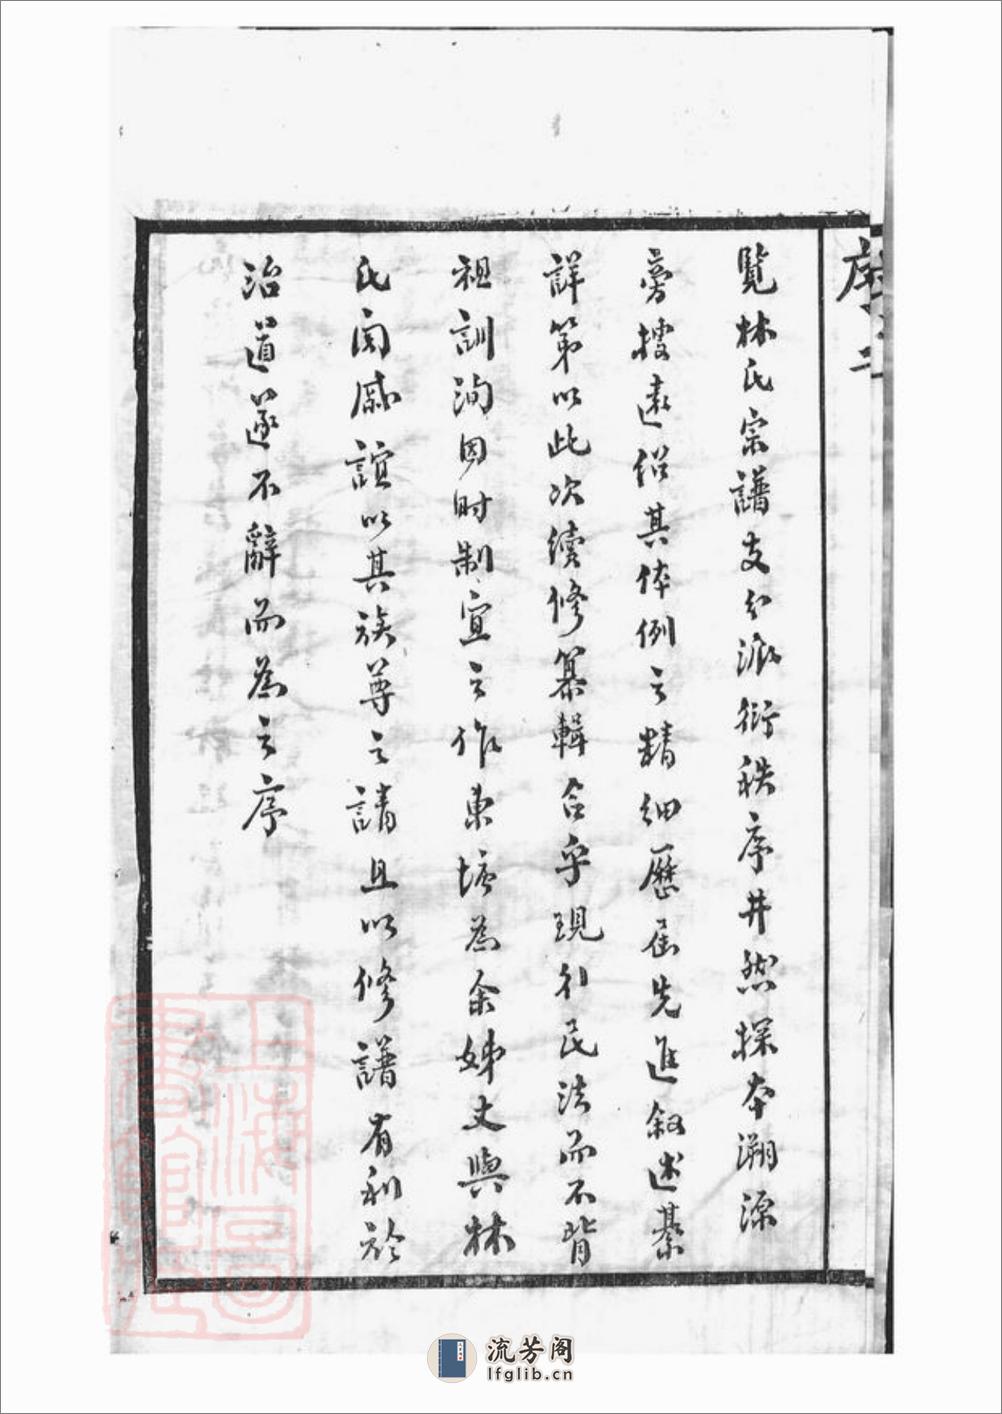 序 二
覽林氏宗譜支分派衍秩序井然探本溯源
旁搜遠紹其体例之精細歷屆先進叙述綦
詳第以此次續修纂輯合乎現行民法而不背
祖訓洵因时制宜之作東塘為余姊丈與林
氏因戚誼以其族尊之請且以修譜有利於
治道遂不辭而為之序
上海圖書館藏
流芳阁
lfglib.cn